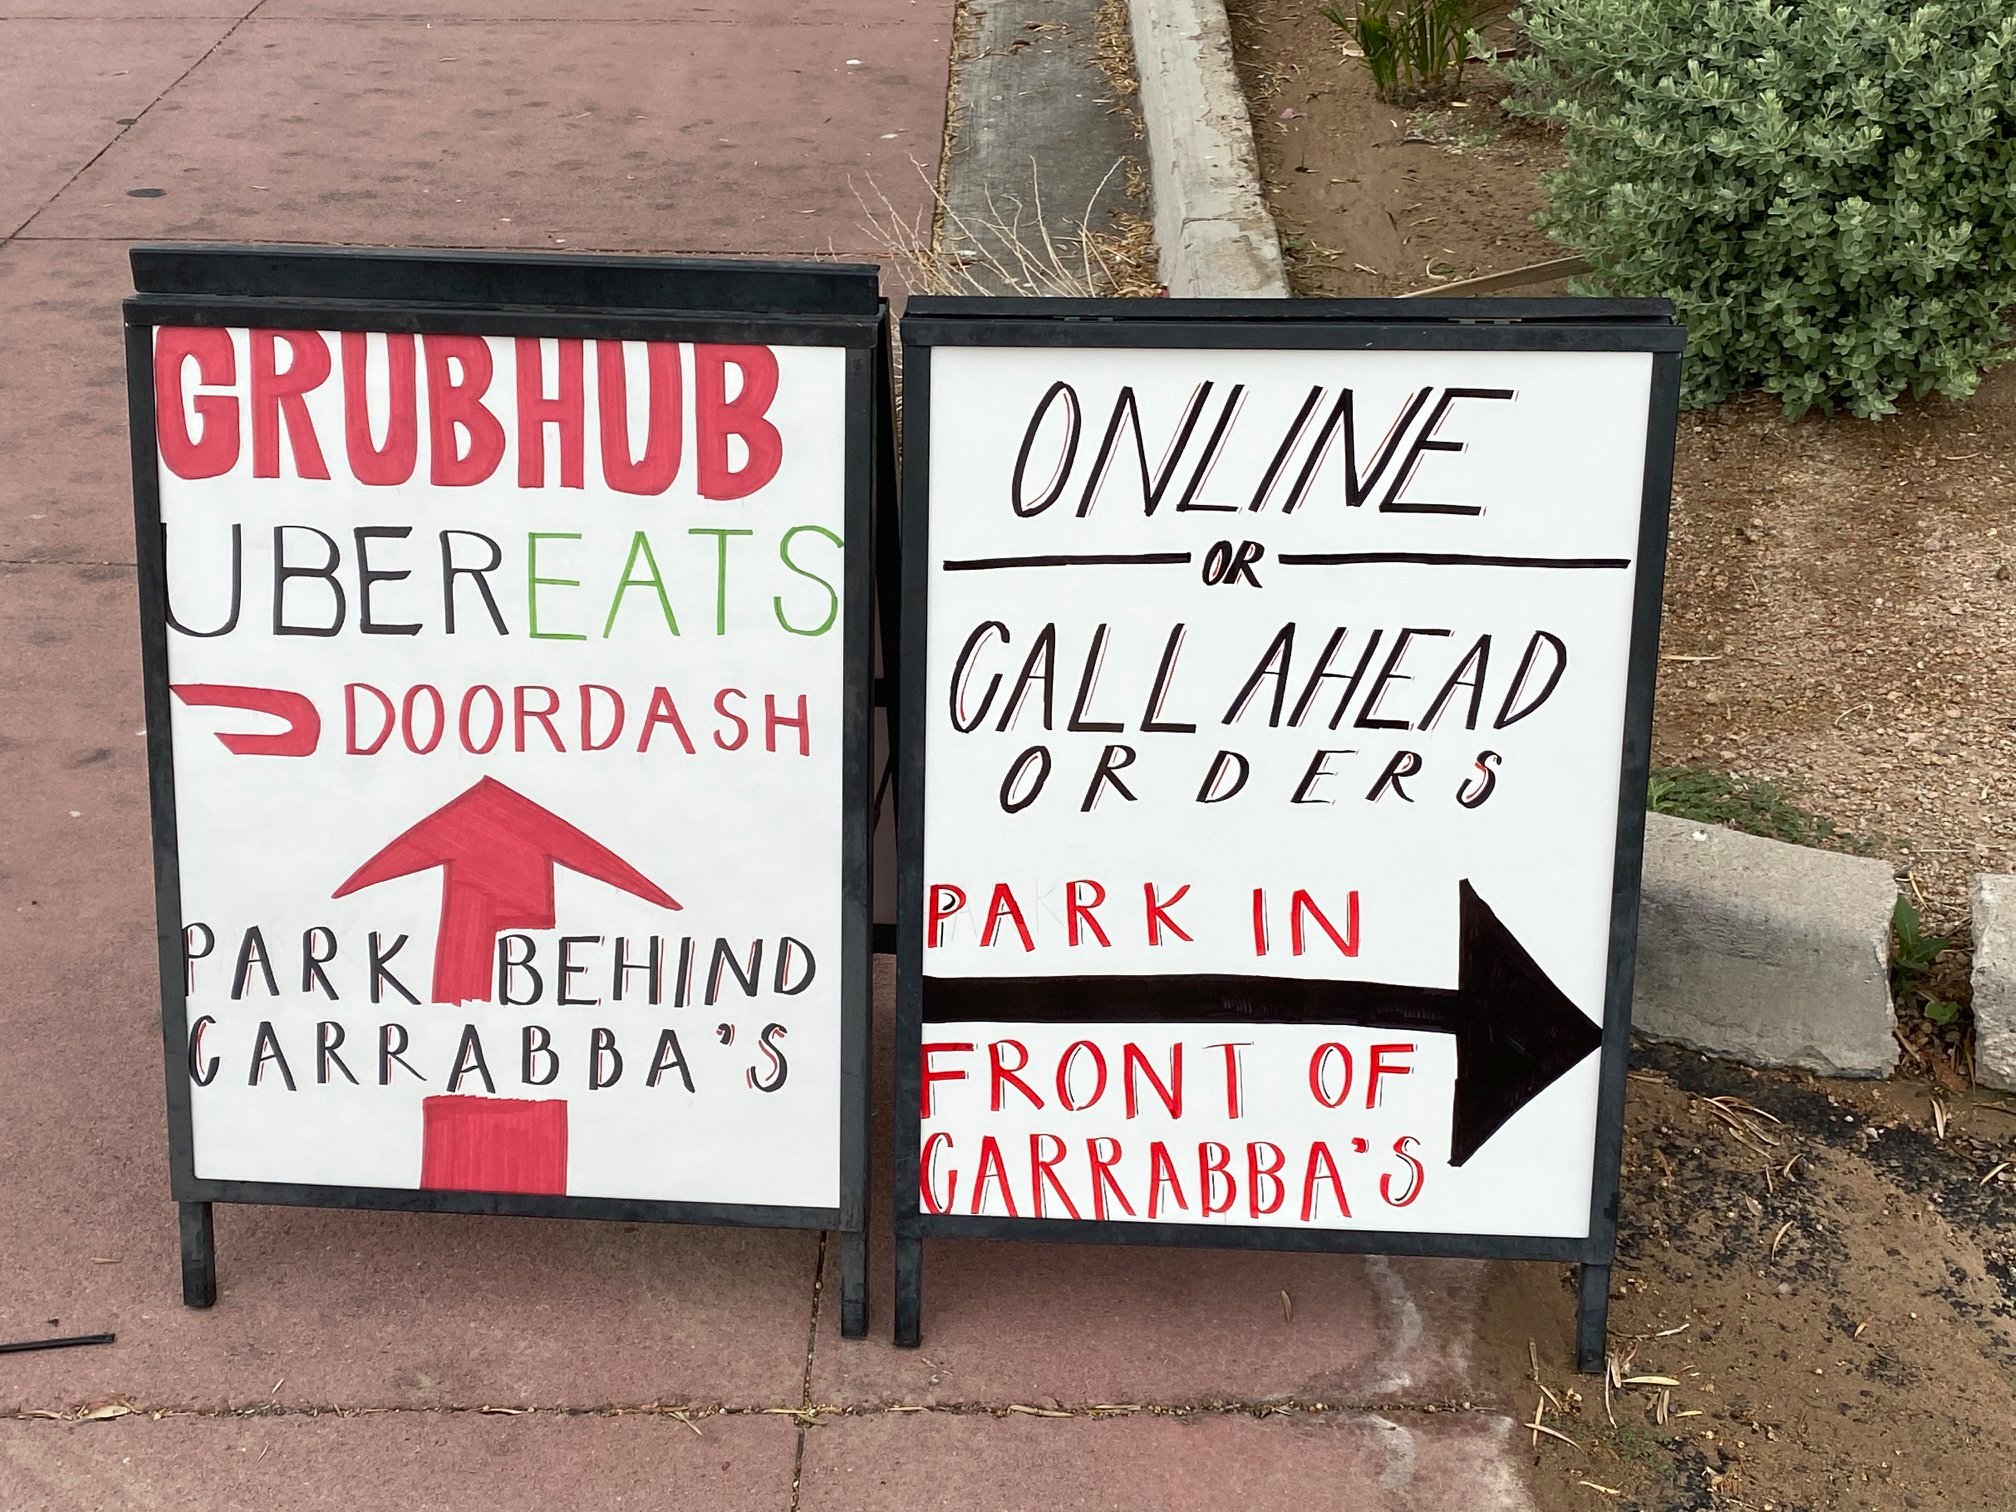 GRUBHUB
UBEREATS
DOORDASH
PARK BEHIND
CARRABBA'S
ONLINE
OR
CALL AHEAD
ORDERS
PARK IN
FRONT OF
CARRABBA'S